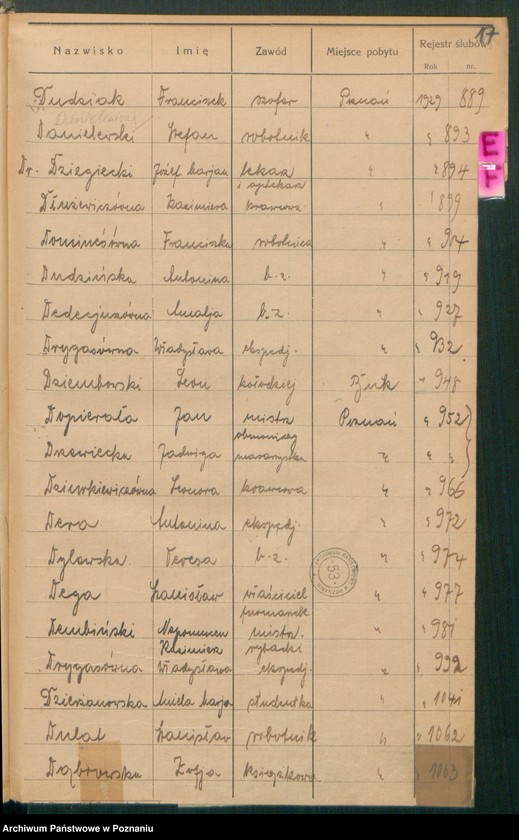 17
Nazwisko Imię Zawód Miejsce pobytu Rejestr ślubów
Rok nr.
Dudziak Franciszek szofer Poznań 1929 889
Danielewicz
Danielewski Stefan robotnik " " 893
Dr. Dziegiecki Józef Marjan lekarz " " 894
i aptekarz
Dłużewiczówna Kazimiera krawcowa " " 899
Franciszka robotnica " " 904
Dudzińska Antonina b.z. " " 919
Amalja b.z. " " 927
Drygasówna Władysława ekspedj. " " 932
Dziembowski Leon kołodziej Buk " 948
Dopierała Jan mistrz Poznań " 952
Drzewiecka Jadwiga masarzystka " " "
Leonora krawcowa " " 966
Dera Antonina ekspedj. " " 972
Dylewska Teresa b.z. " " 974
Dega Stanisław właściciel " " 977
furmanek
Dembiński Nepomucen mistrz " " 981
Kazimierz rybacki
Drygasówna Władysława ekspedj. " " 992
Dzierżanowska Aniela Marja studentka " " 1041
Dulat Stanisław robotnik " " 1062
Dąbrowska Zofja książkowa " " 1063
E
F
53
Archiwum Państwowe w Poznaniu